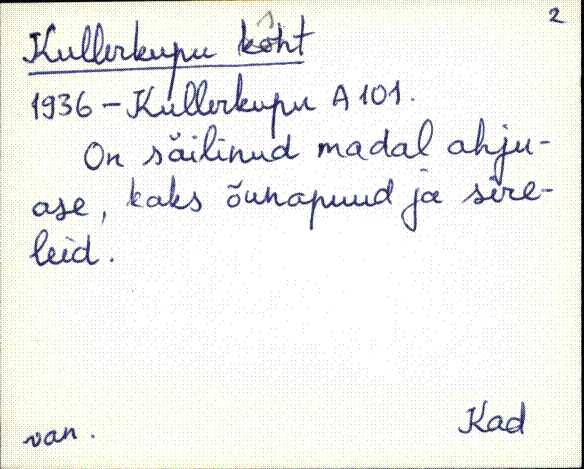 2
Kullerkupu kôht
1936 – Kullerkupu A 101.
On säilinud madal ahju-
ase, kaks õunapuud ja sire-
leid.
van.
Kad